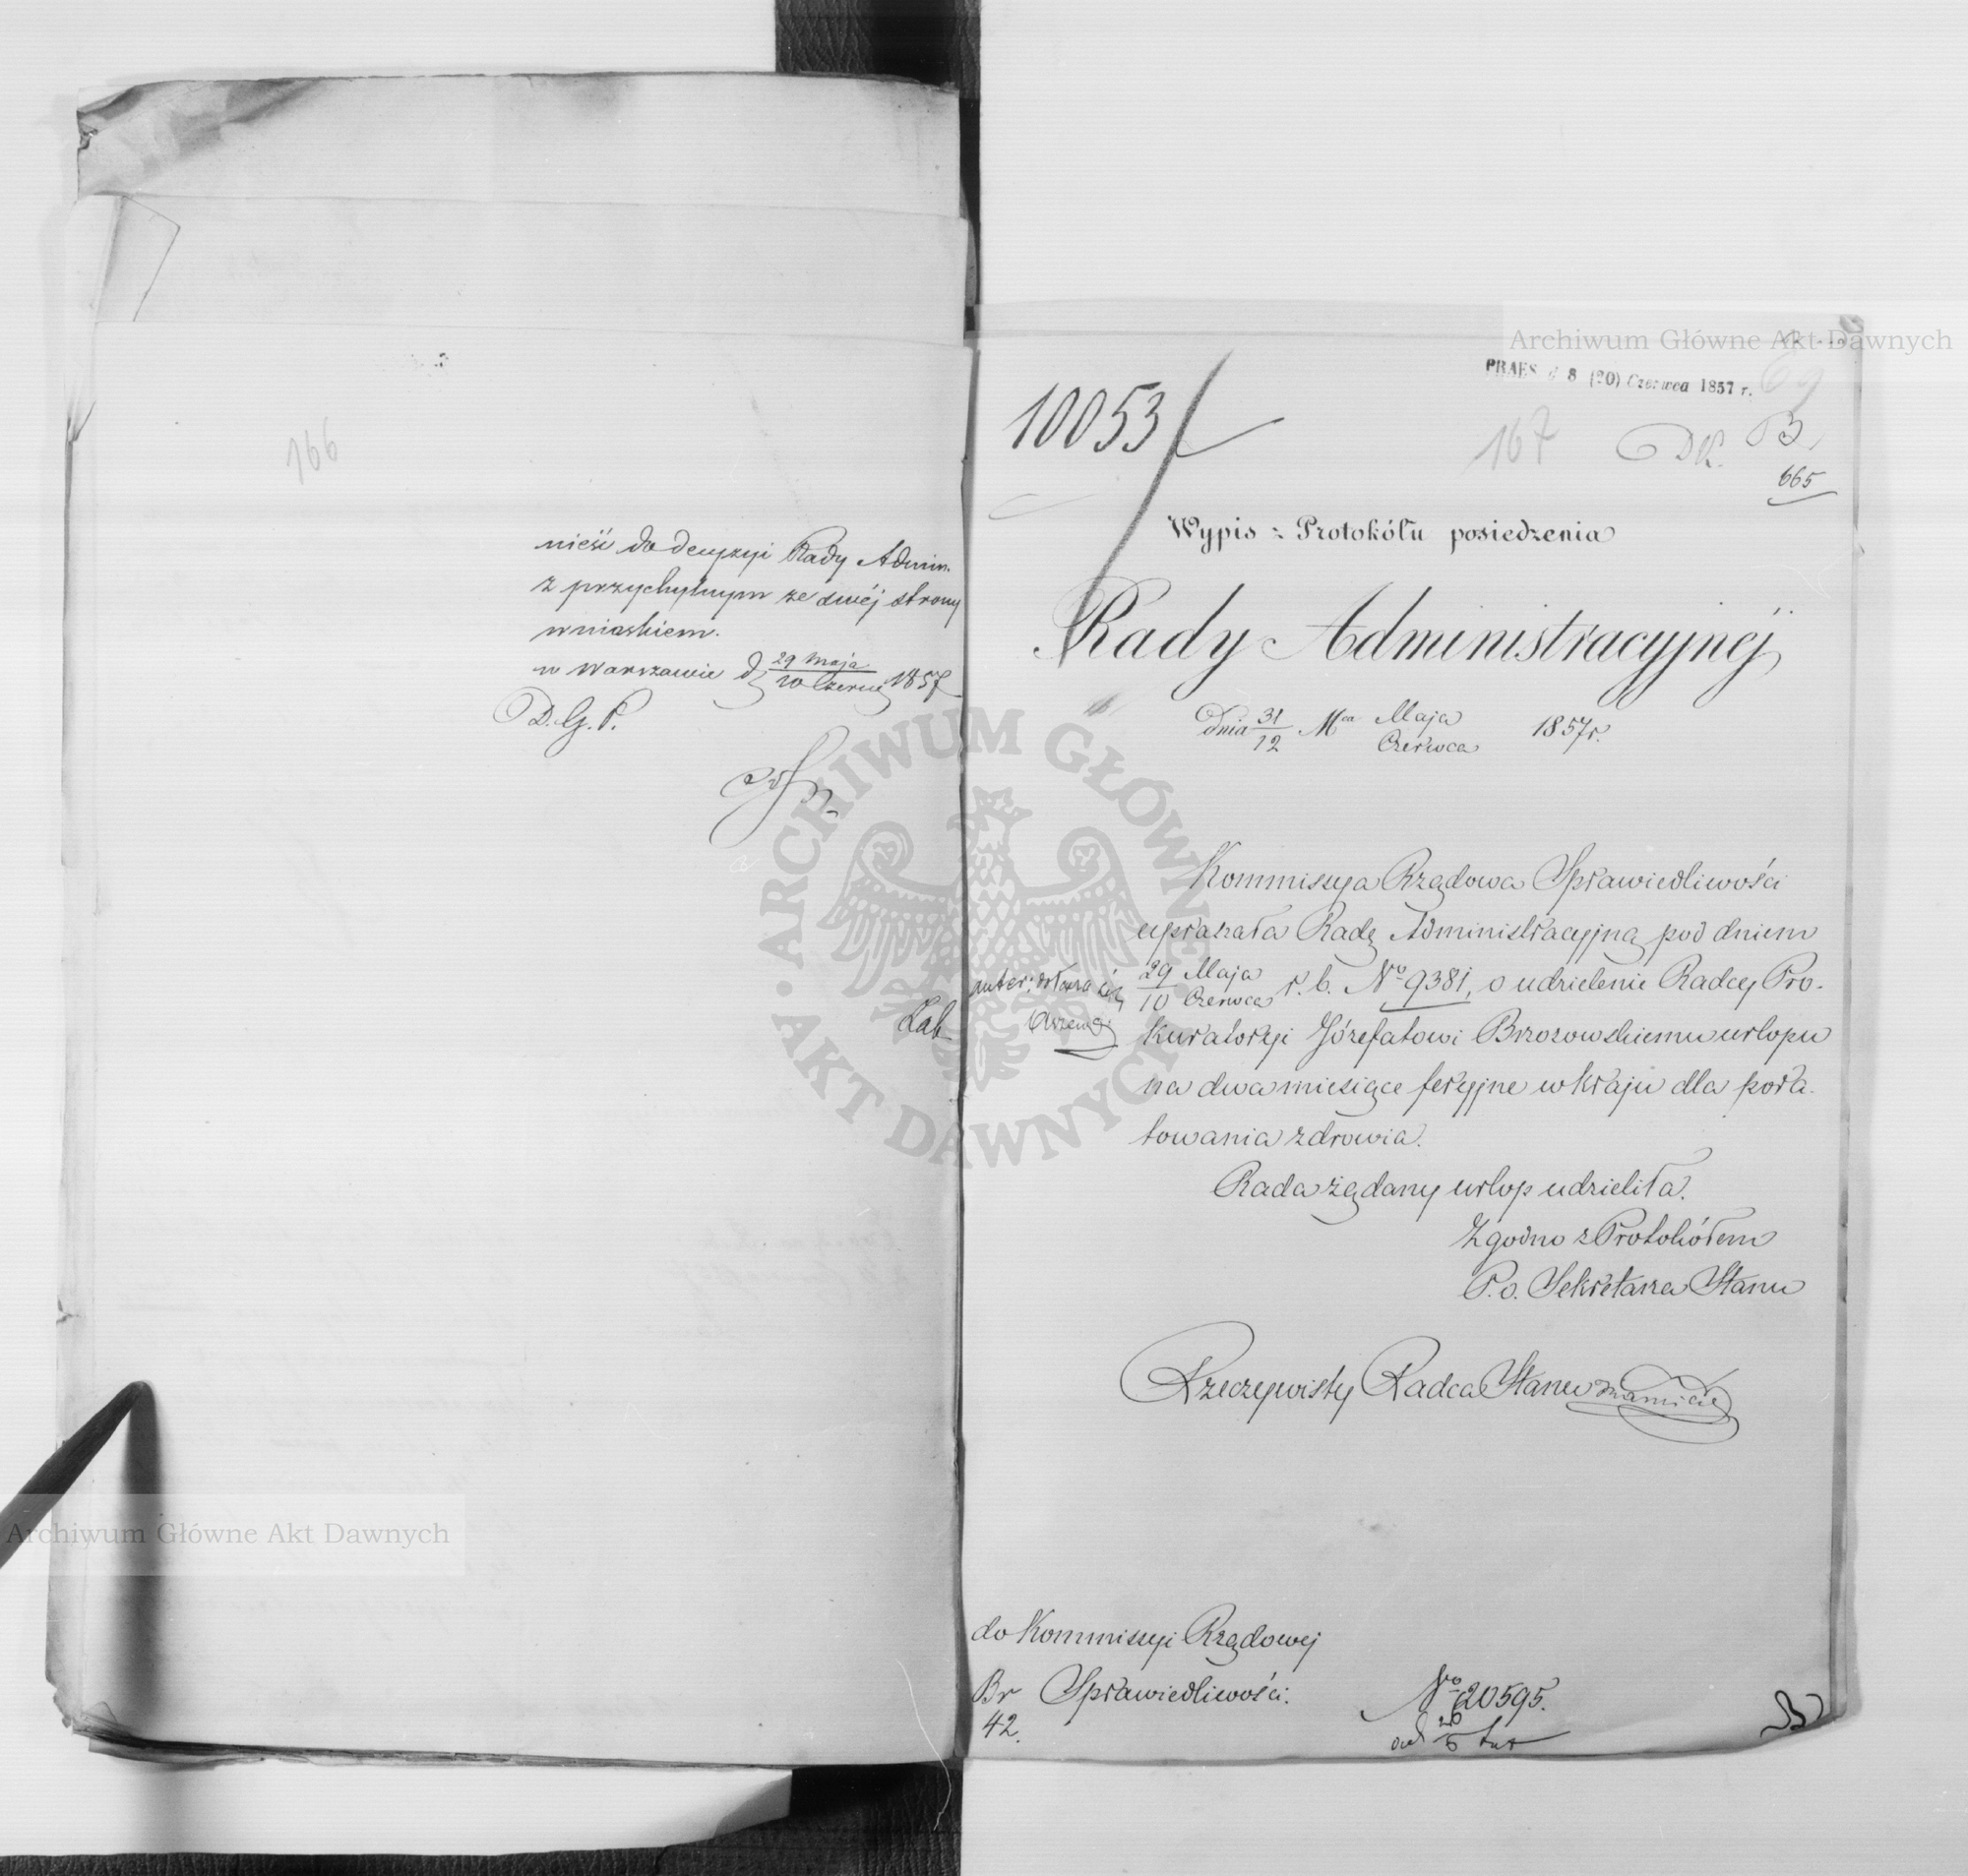 166
nieść do decyzyi Rady Admin.
z przychylnym ze swéj strony
wnioskiem.
w Warszawie d. 29 Maja / 10 Czerwca 1857
D. G. P.
Archiwum Główne Akt Dawnych
PRAES. d. 8 (20) Czerwca 1857 r.
69
10053
167
B
665
Wypis z Protokółu posiedzenia
Rady Administracyjnéj
Dnia 31/12 Mca Maja/Czerwca 1857 r.
Kommissya Rządowa Sprawiedliwości
upraszała Radę Administracyjną pod dniem
29 Maja / 10 Czerwca r. b. No 9381, o udzielenie Radcy Pro-
kuratoryi Józefatowi Brzozowskiemu urlopu
na dwa miesiące feryjne w kraju dla pora-
towania zdrowia.
Rada żądany urlop udzieliła.
Zgodno z Protokółem
P. o. Sekretarza Stanu
Rzeczywisty Radca Stanu
do Kommissyi Rządowej
Sprawiedliwości.
Br
42.
No 20595.
ARCHIWUM GŁÓWNE AKT DAWNYCH
Archiwum Główne Akt Dawnych